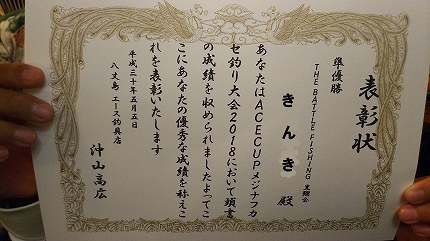 表彰状
準優勝
THE BATTLE FISHING 黒鯛会
きんき 殿
あなたはACECUPメジナフカ
セ釣り大会2018において頭書
の成績を収められましたよってこ
こにあなたの優秀な成績を称えこ
れを表彰いたします
平成三十年五月五日
八丈島 エース釣具店
沖山高広